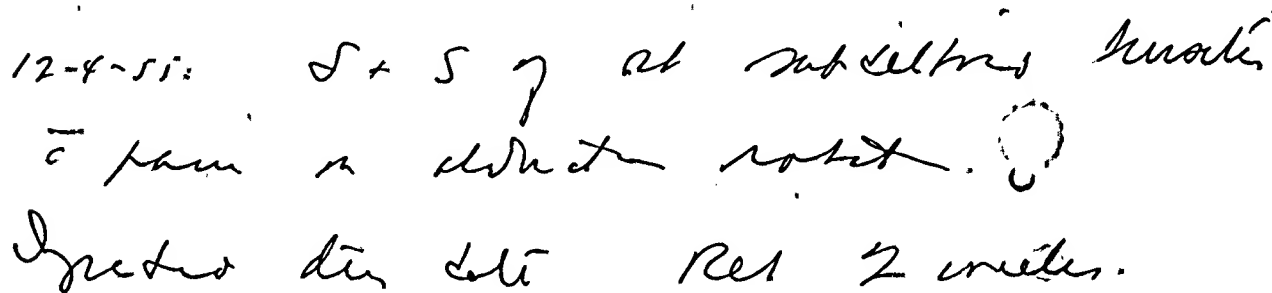 12-4-55: S + S of rt subdeltoid bursitis
c̄ pain on abduction rotation.
Injected Ret 2 weeks.